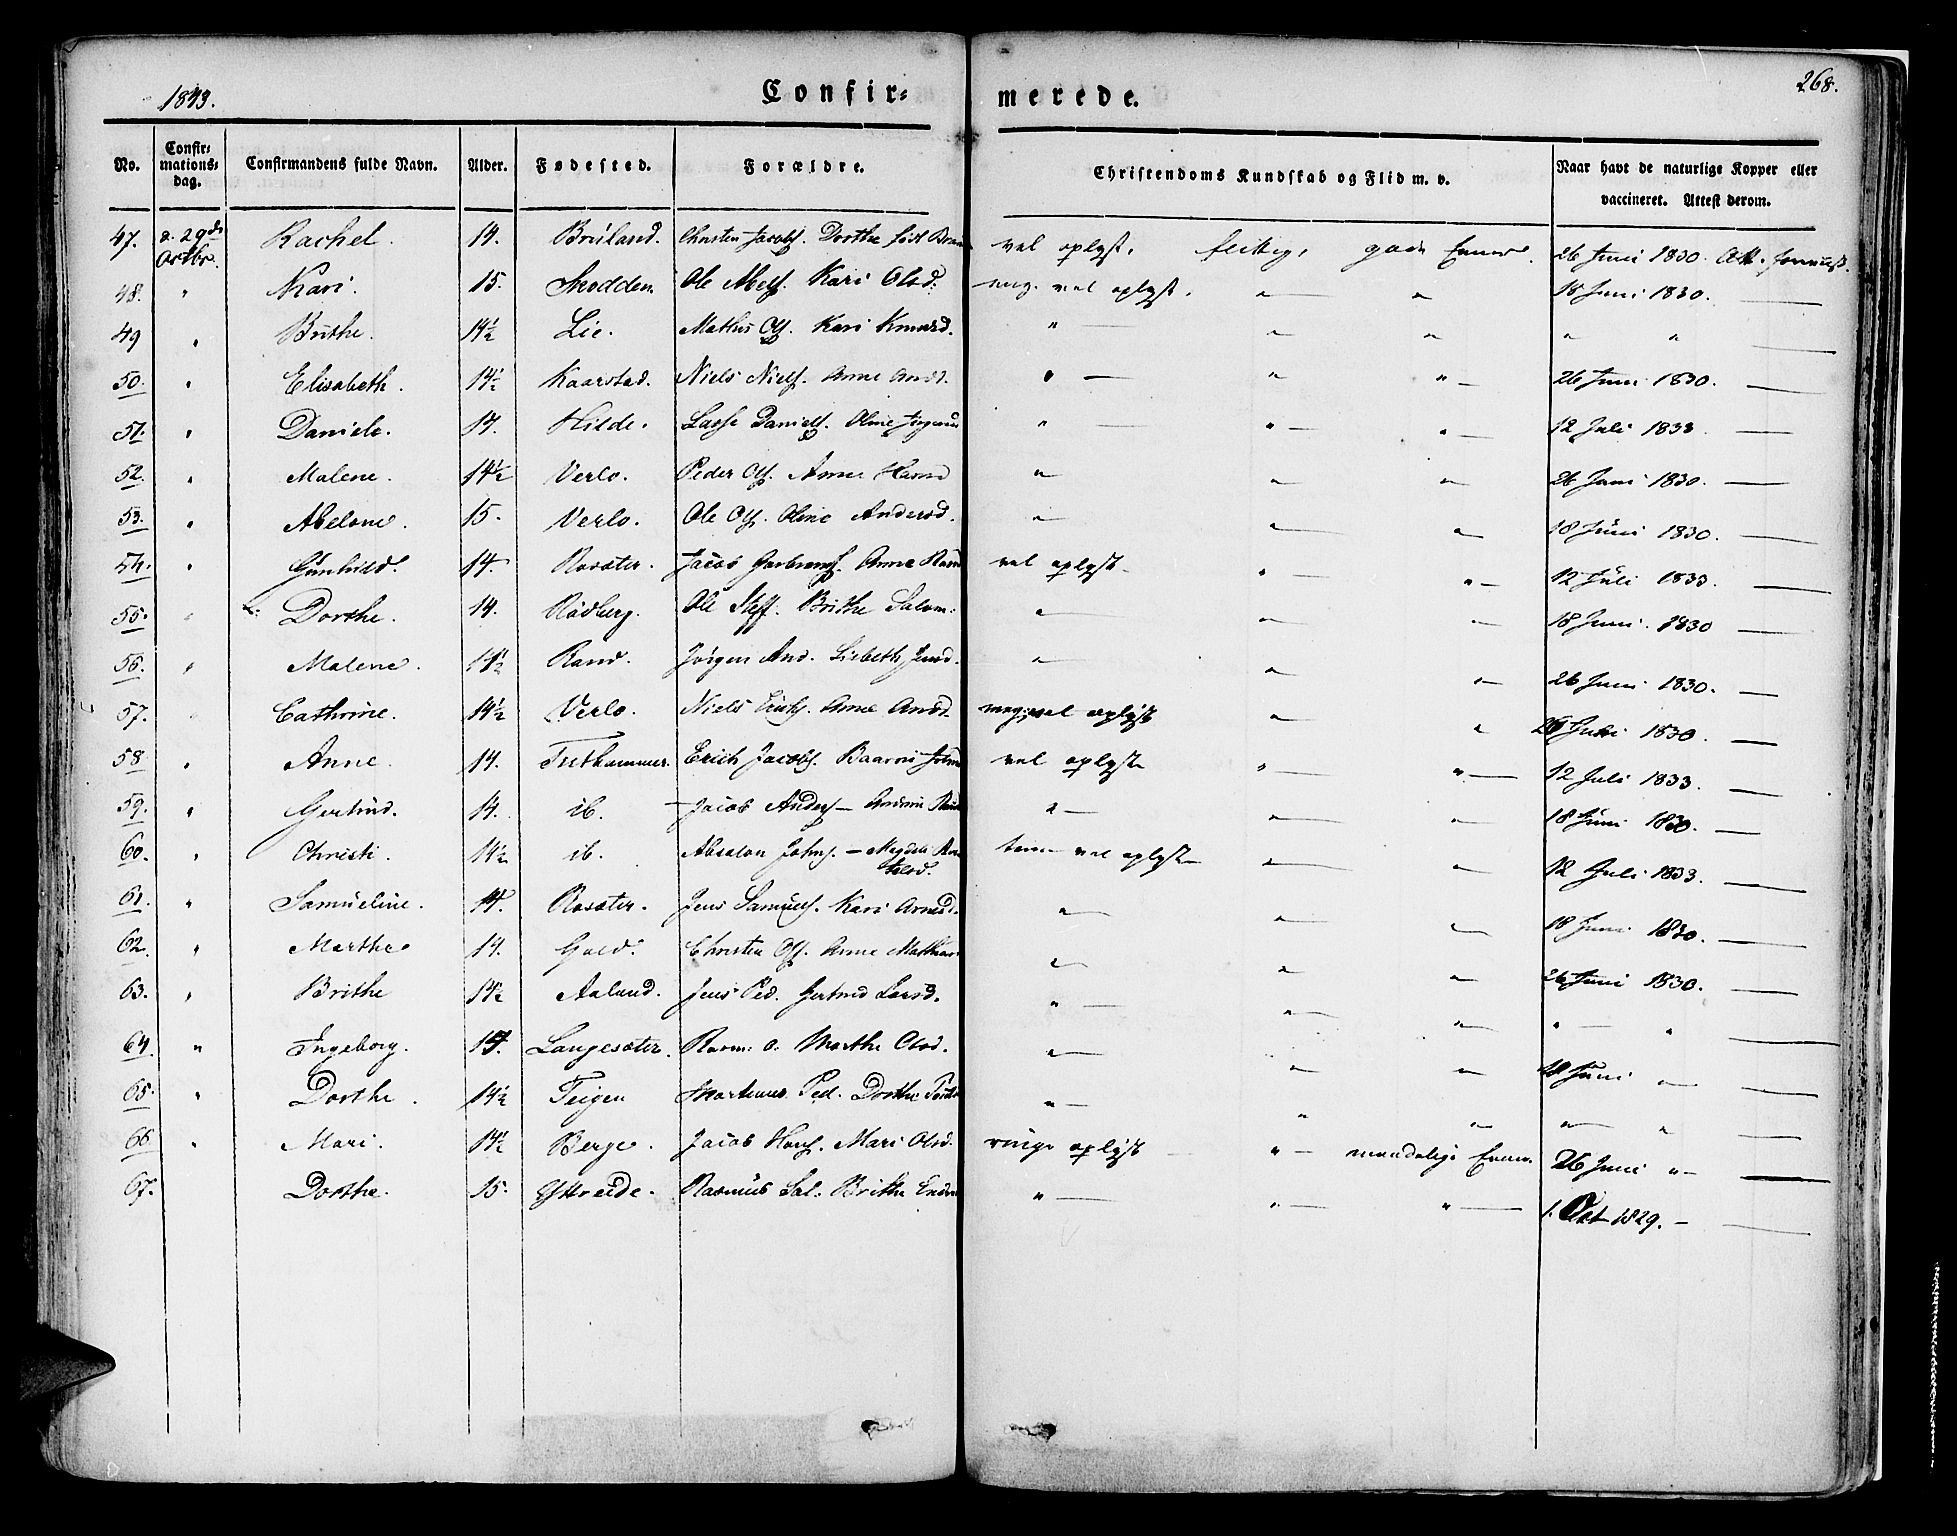 1843.
Confir=
merede.
268.
No. Confir=mations=dag. Confirmandens fulde Navn. Alder. Fødested. Forældre. Christendoms Kundskab og Flid m. v. Naar havt de naturlige Kopper eller vaccineret. Attest derom.
47. d. 29de Octbr. Rachel. 14. Bruland. Christen Jacobs. Dorthe født vel oplyst. flittig, gode Evner. 26 Juni 1830. Att.
48. " Kari. 15. Skodden. Ole Abels. Kari Olsd. meg. vel oplyst. " " 18 Juni 1830.
49 " Brithe. 14½ Lie. Mathis Ols. Kari " " " " "
50. " Elisabeth. 14½ Kaarstad. Niels Niels. Anne Andd. " " " 26 Juni 1830.
51. " Daniele. 14. Hilde. Lasse Daniels. Oline " " " 12 Juli 1833
52. " Malene. 14½ Verlo. Peder Ols. Anne " " " 26 Juni 1830.
53. " Abelone. 15. Verlo. Ole Ols. Oline Andersd. " " " 18 Juni 1830.
54. " Gunhild. 14. Rosæter. Jacob Anne vel oplyst " " 12 Juli 1833
55. " Dorthe. 14. Rødberg. Ole Steff. Brithe Salom: " " " 18 Juni. 1830
56. " Malene. 14½ Rand. Jørgen And. Lisbeth Jensd. " " " 26 Juni 1830.
57. " Cathrine. 14½ Verlo. Niels Erichs. Anne Andd. meg. vel oplyst " " 26 Juni 1830.
58. " Anne. 14. Erich Jacobs. vel oplyst " " 12 Juli 1833.
59. " Gertrud. 14. ib. Jacob Anders " " " 18 Juni 1830.
60. " Christi. 14½ ib. Absalon Johns. vel oplyst " " 12 Juli 1833.
61. " Samueline. 14. Rosæter. Jens Samuels. Kari " " " 18 Juni 1830.
62. " Marthe 14. Christen Ols. Anne " " " 26 Juni 1830.
63. " Brithe 14½ Aaland. Jens Ped. Gertrud Larsd. " " " " "
64. " Ingeborg. 15. Langesæter. Rasm: O. Marthe Olsd. " " " 18 Juni "
65. " Dorthe. 14½ Teigen Martinus Ped. Dorthe " " " " "
66 " Mari. 14½ Berge. Jacob Hans. Mari Olsd. ringe oplyst " maadelige Evner. 26 Juni "
67. Dorthe. 15. Ytreide. Rasmus Sal. Brithe " " " 1. Oct 1829.